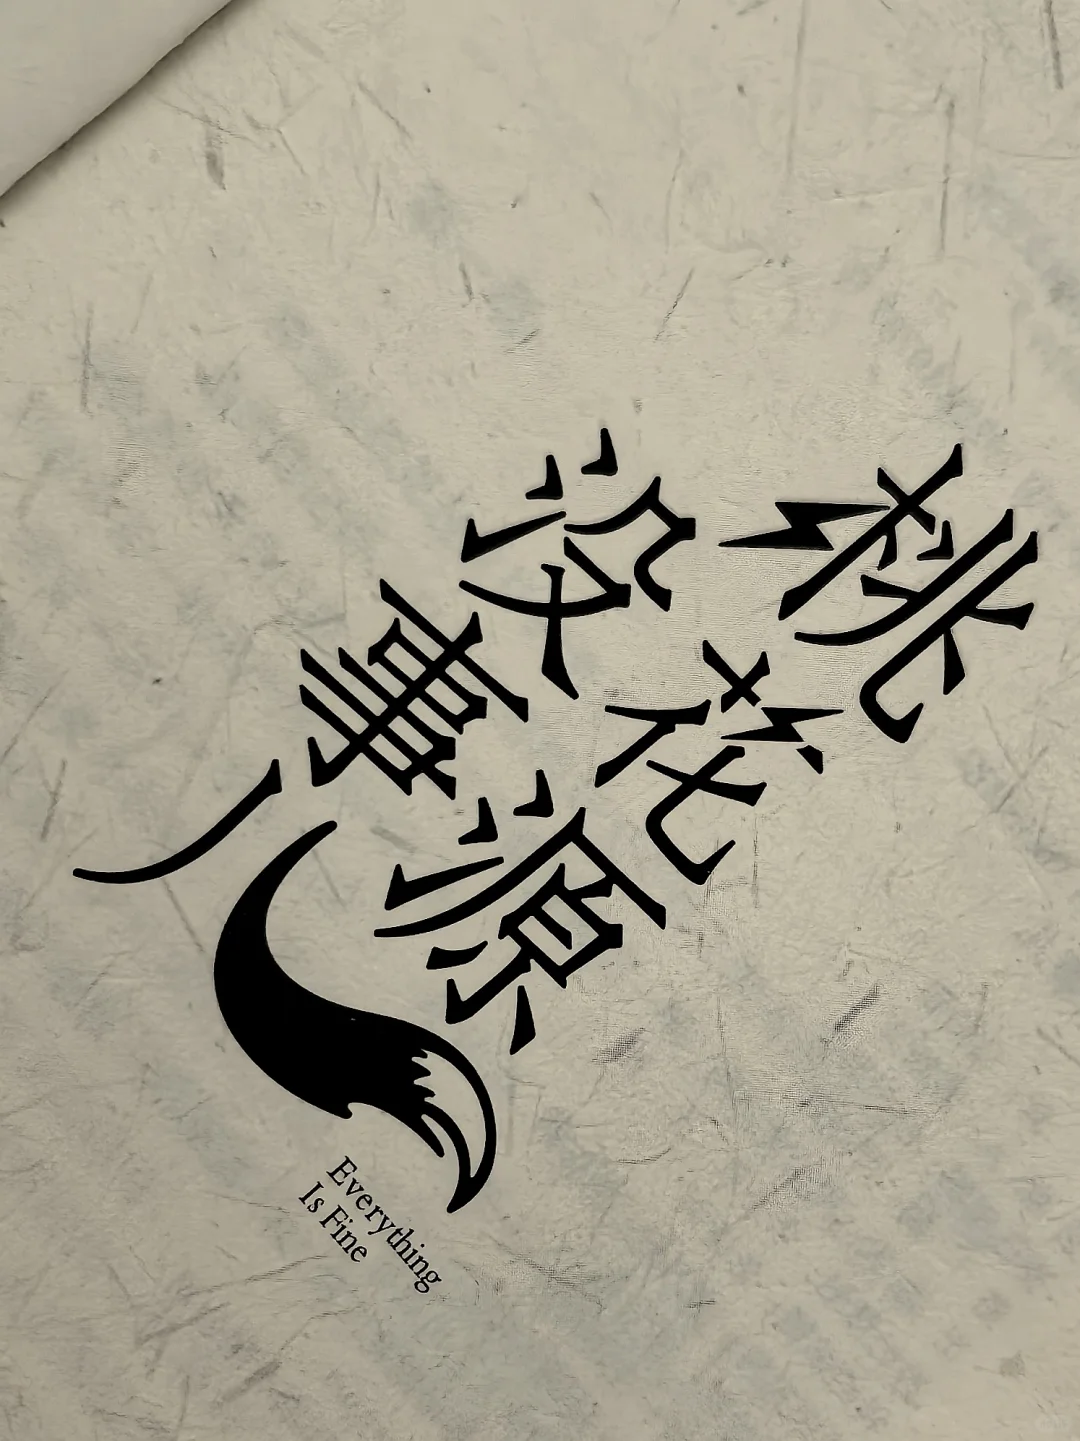 桃花源
没事儿
Everything
Is Fine